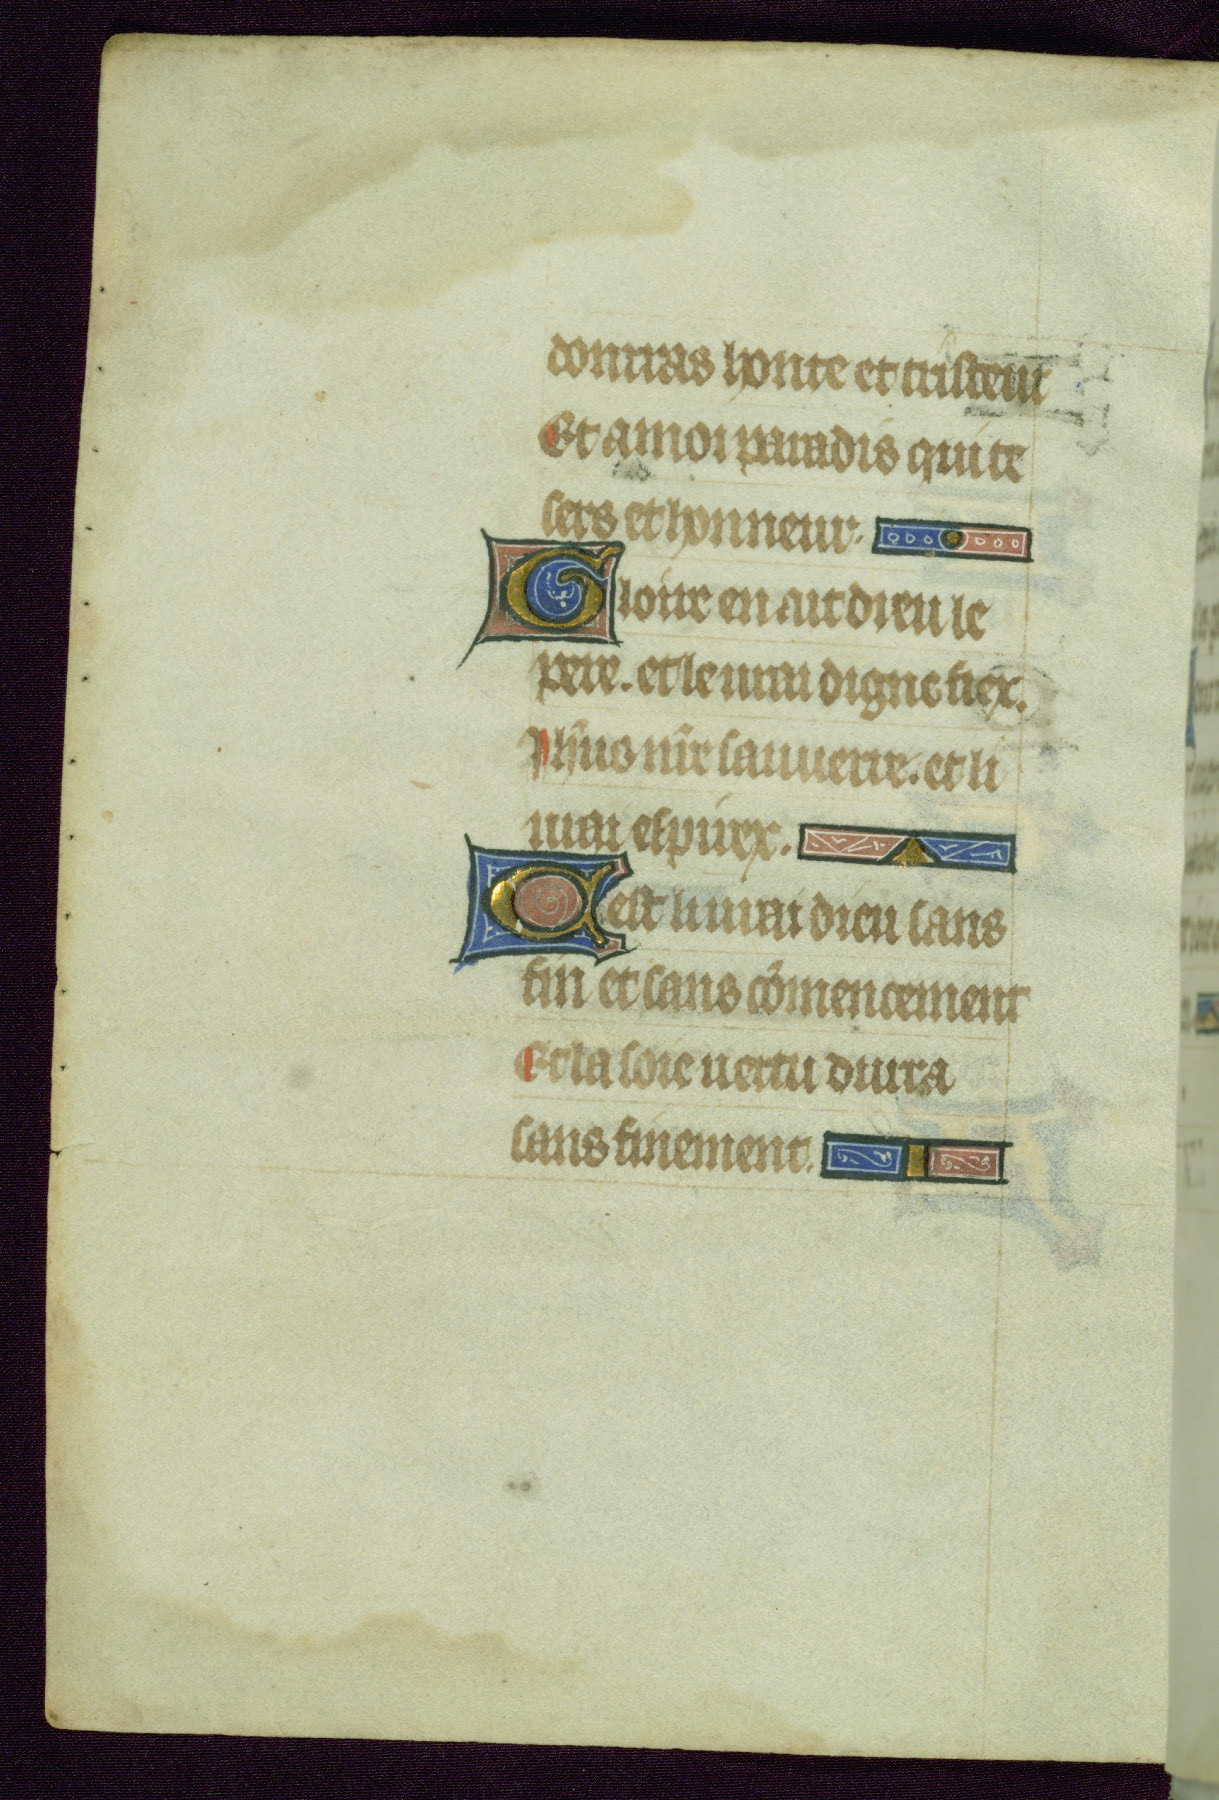 donrras honte et tristeur
Et a moi paradis qui te
sers et honneur.
Gloire en ait dieu le
pere. et le vrai digne fiex.
Ihs̄us n̄re sauuerre. et li
urai espirex.
C est li urai dieu sans
fin et sans cōmencement
Et la soie uertu duira
sans finement.